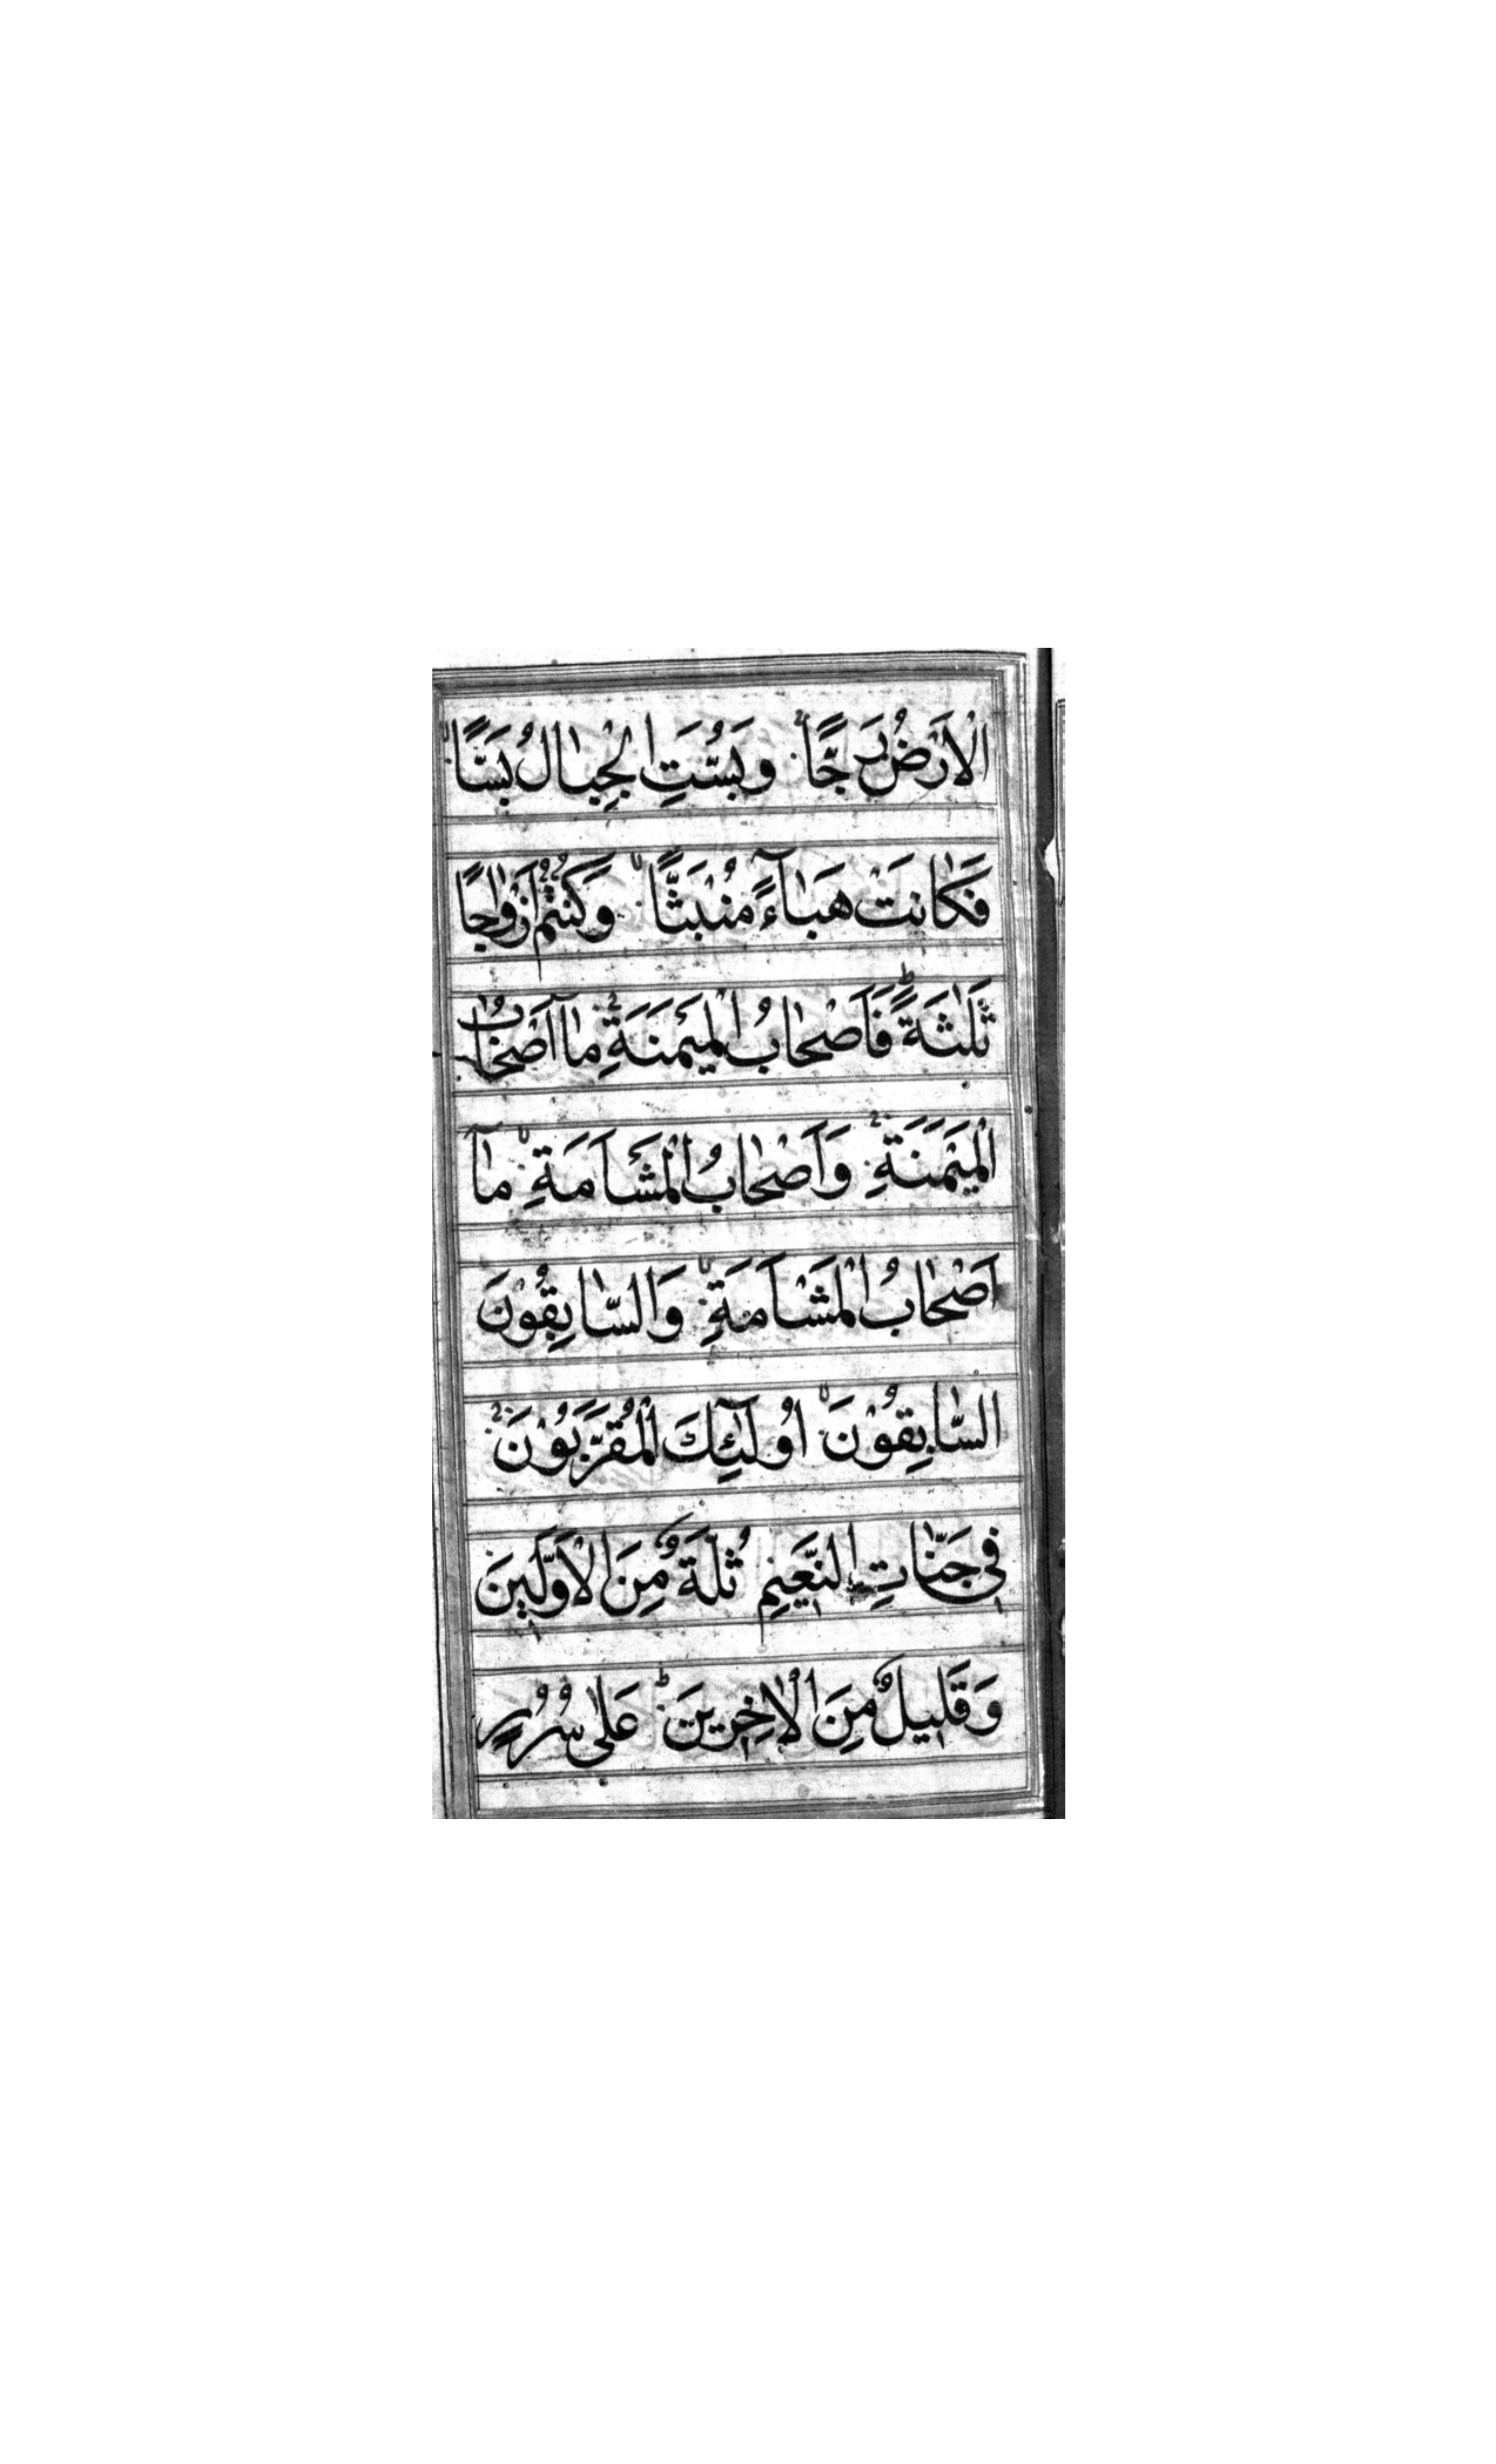 الْاَرْضُ رَجًّا وَبُسَّتِ الْجِبَالُ بَسًّا
فَكَانَتْ هَبَآءً مُنْبَثًّا وَكُنْتُمْ اَزْوَاجًا
ثَلٰثَةً فَاَصْحَابُ الْمَيْمَنَةِ مَآ اَصْحَابُ
الْمَيْمَنَةِ وَاَصْحَابُ الْمَشْاَمَةِ مَآ
اَصْحَابُ الْمَشْاَمَةِ وَالسَّابِقُوْنَ
السَّابِقُوْنَ اُولٰٓئِكَ الْمُقَرَّبُوْنَ
فِي جَنَّاتِ النَّعِيْمِ ثُلَّةٌ مِنَ الْاَوَّلِينَ
وَقَلِيلٌ مِنَ الْاٰخِرِينَ عَلٰى سُرُرٍ